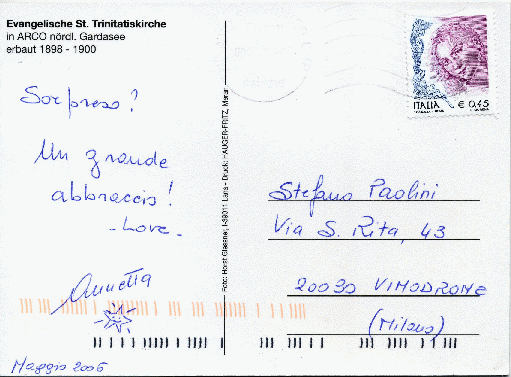 Evangelische St. Trinitatiskirche
in ARCO nördl. Gardasee
erbaut 1898 - 1900
Sorpreso?
Un grande
abbraccio!
- Love -
Annetta
Maggio 2006
Foto: Horst Glassner, I-39011 Lana - Druck: HAUGER-FRITZ, Meran
ITALIA € 0,45
Stefano Paolini
Via S. Rita, 43
20090 VIMODRONE
(Milano)